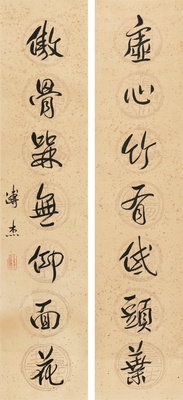 虛心竹有低頭葉
傲骨梅無仰面花
溥杰